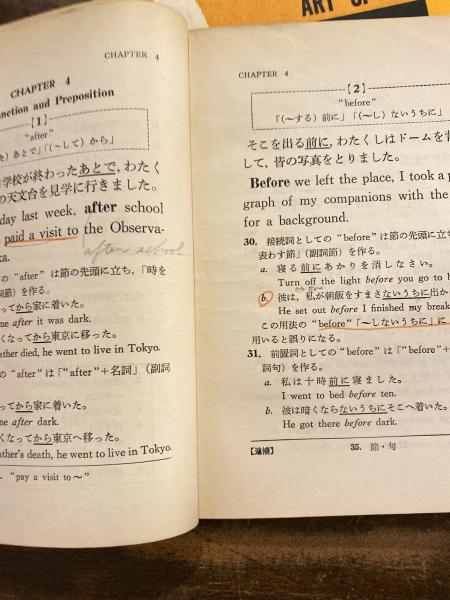 ART OF
CHAPTER 4
CHAPTER 4
nction and Preposition
【1】
"after"
あとで」「(〜して) から」
学校が終わったあとで, わたく
の天文台を見学に行きました。
day last week, after school
paid a visit to the Observa-
after school
ka.
の "after" は節の先頭に立ち, 「時を
詞節) を作る。
ってから家に着いた。
me after it was dark.
くなってから東京に移った。
ather died, he went to live in Tokyo.
の "after" は「"after"+名詞」(副詞
ってから家に着いた。
me after dark.
くなってから東京へ移った。
ather's death, he went to live in Tokyo.
"pay a visit to〜"
CHAPTER 4
【2】
"before"
「(〜する) 前に」「(〜し) ないうちに」
そこを出る前に, わたくしはドームを背
して, 皆の写真をとりました。
Before we left the place, I took a p
graph of my companions with the
for a background.
30. 接続詞としての "before" は節の先頭に立ち
表わす節」(副詞節) を作る。
a. 寝る前にあかりを消しなさい。
Turn off the light before you go to b
b. 彼は, 私が朝飯をすまさないうちに出か
He set out before I finished my break
この用法の "before"「〜しないうちに」に
用いると誤りになる。
31. 前置詞としての "before" は「"before"+
詞句) を作る。
a. 私は十時前に寝ました。
I went to bed before ten.
b. 彼は暗くならないうちにそこへ着いた。
He got there before dark.
35. 節・句